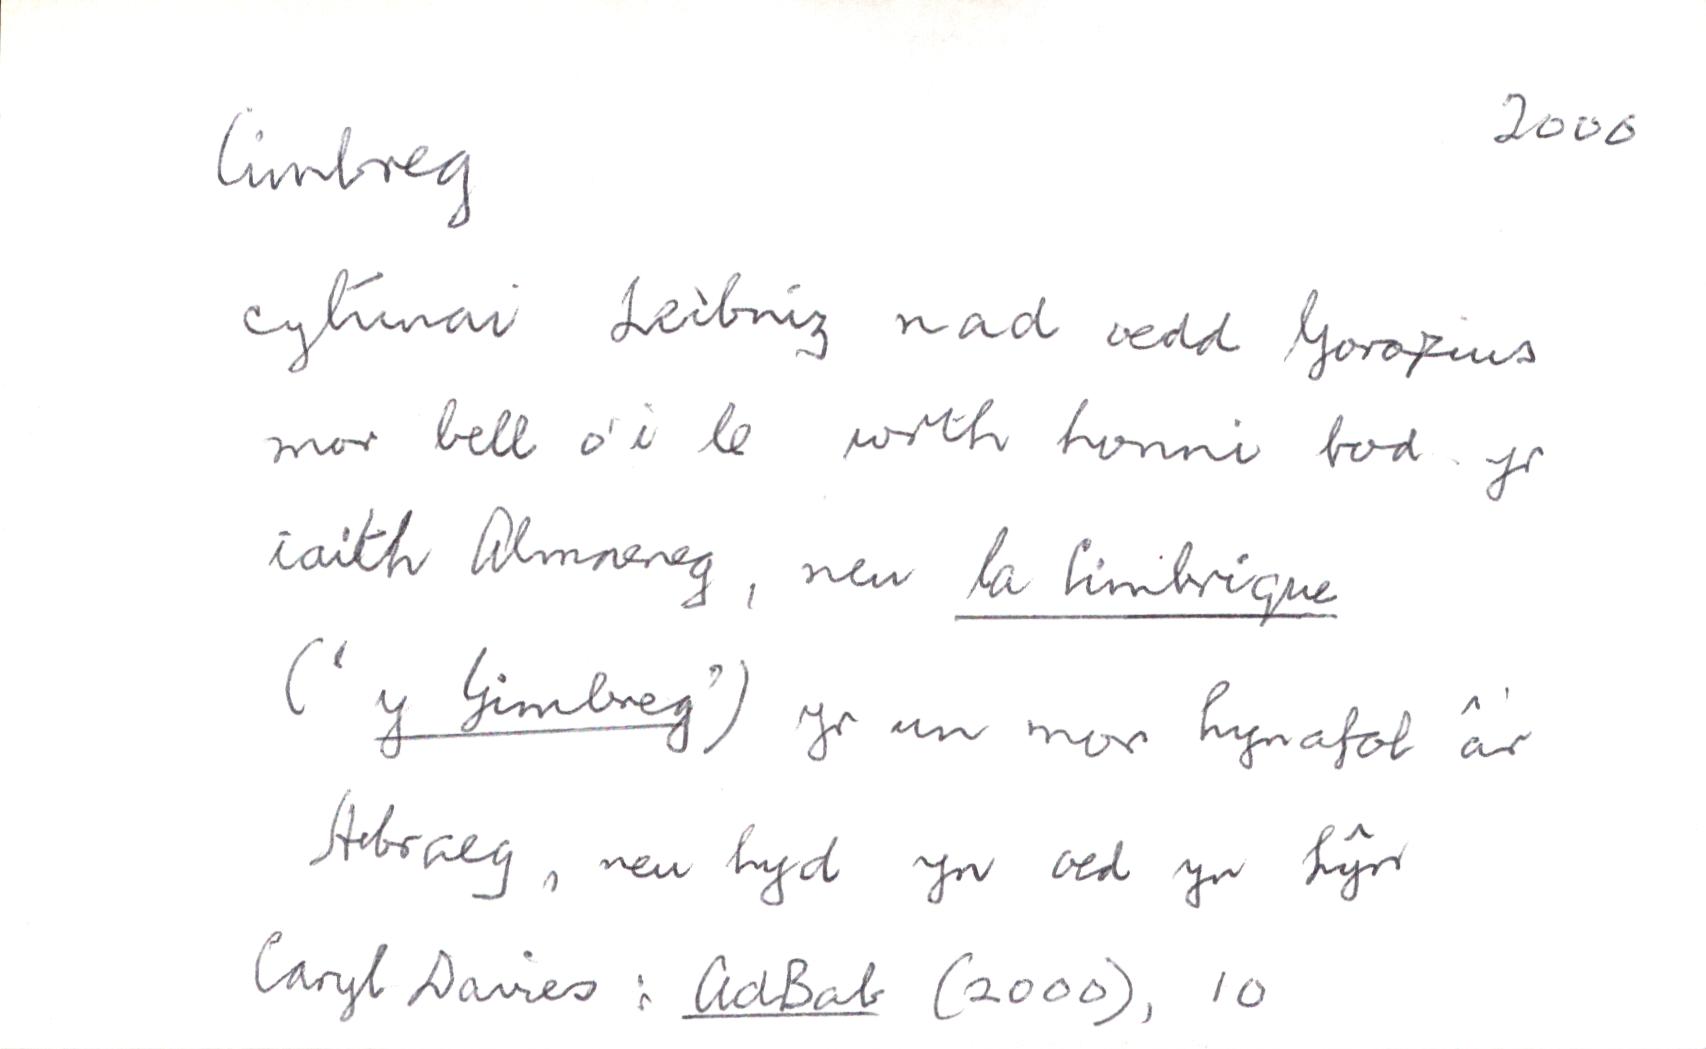 Cimbreg 2000
cytunai Leibniz nad oedd Goropius
mor bell o'i le wrth honni bod yr
iaith Almaeneg, neu la Cimbrique
('y Gimbreg') yr un mor hynafol â'r
Hebraeg, neu hyd yn oed yn hŷn
Caryl Davies: AdBab (2000), 10